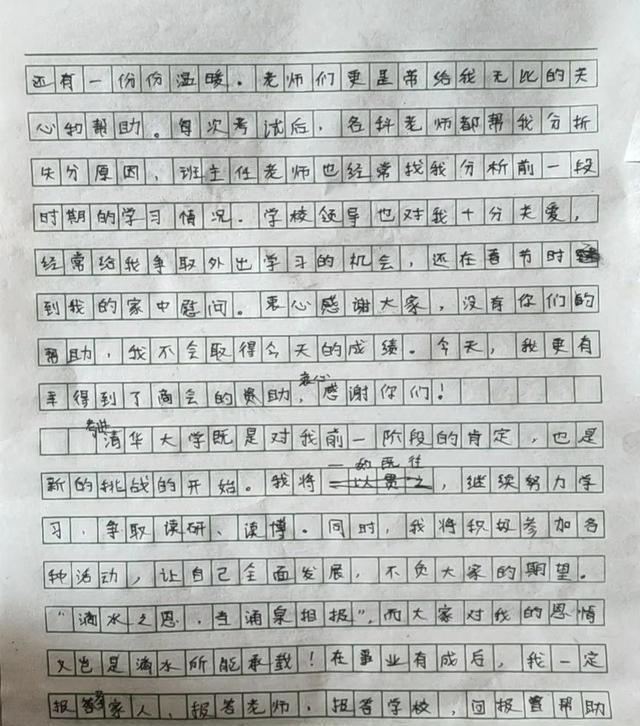 还有一份份温暖。老师们更是带给我无比的关
心和帮助。每次考试后，各科老师都帮我分析
失分原因，班主任老师也经常找我分析前一段
时期的学习情况。学校领导也对我十分关爱，
经常给我争取外出学习的机会，还在春节时
到我的家中慰问。衷心感谢大家，没有你们的
帮助，我不会取得今天的成绩。今天，我更有
幸得到了商会的资助，衷心感谢你们！
考进清华大学既是对我前一阶段的肯定，也是
新的挑战的开始。我将一如既往，继续努力学
习，争取读研、读博。同时，我将积极参加各
种活动，让自己全面发展，不负大家的期望。
“滴水之恩，当涌泉相报”，而大家对我的恩情
又岂是滴水所能承载！在事业有成后，我一定
报答家人，报答老师，报答学校，回报曾帮助